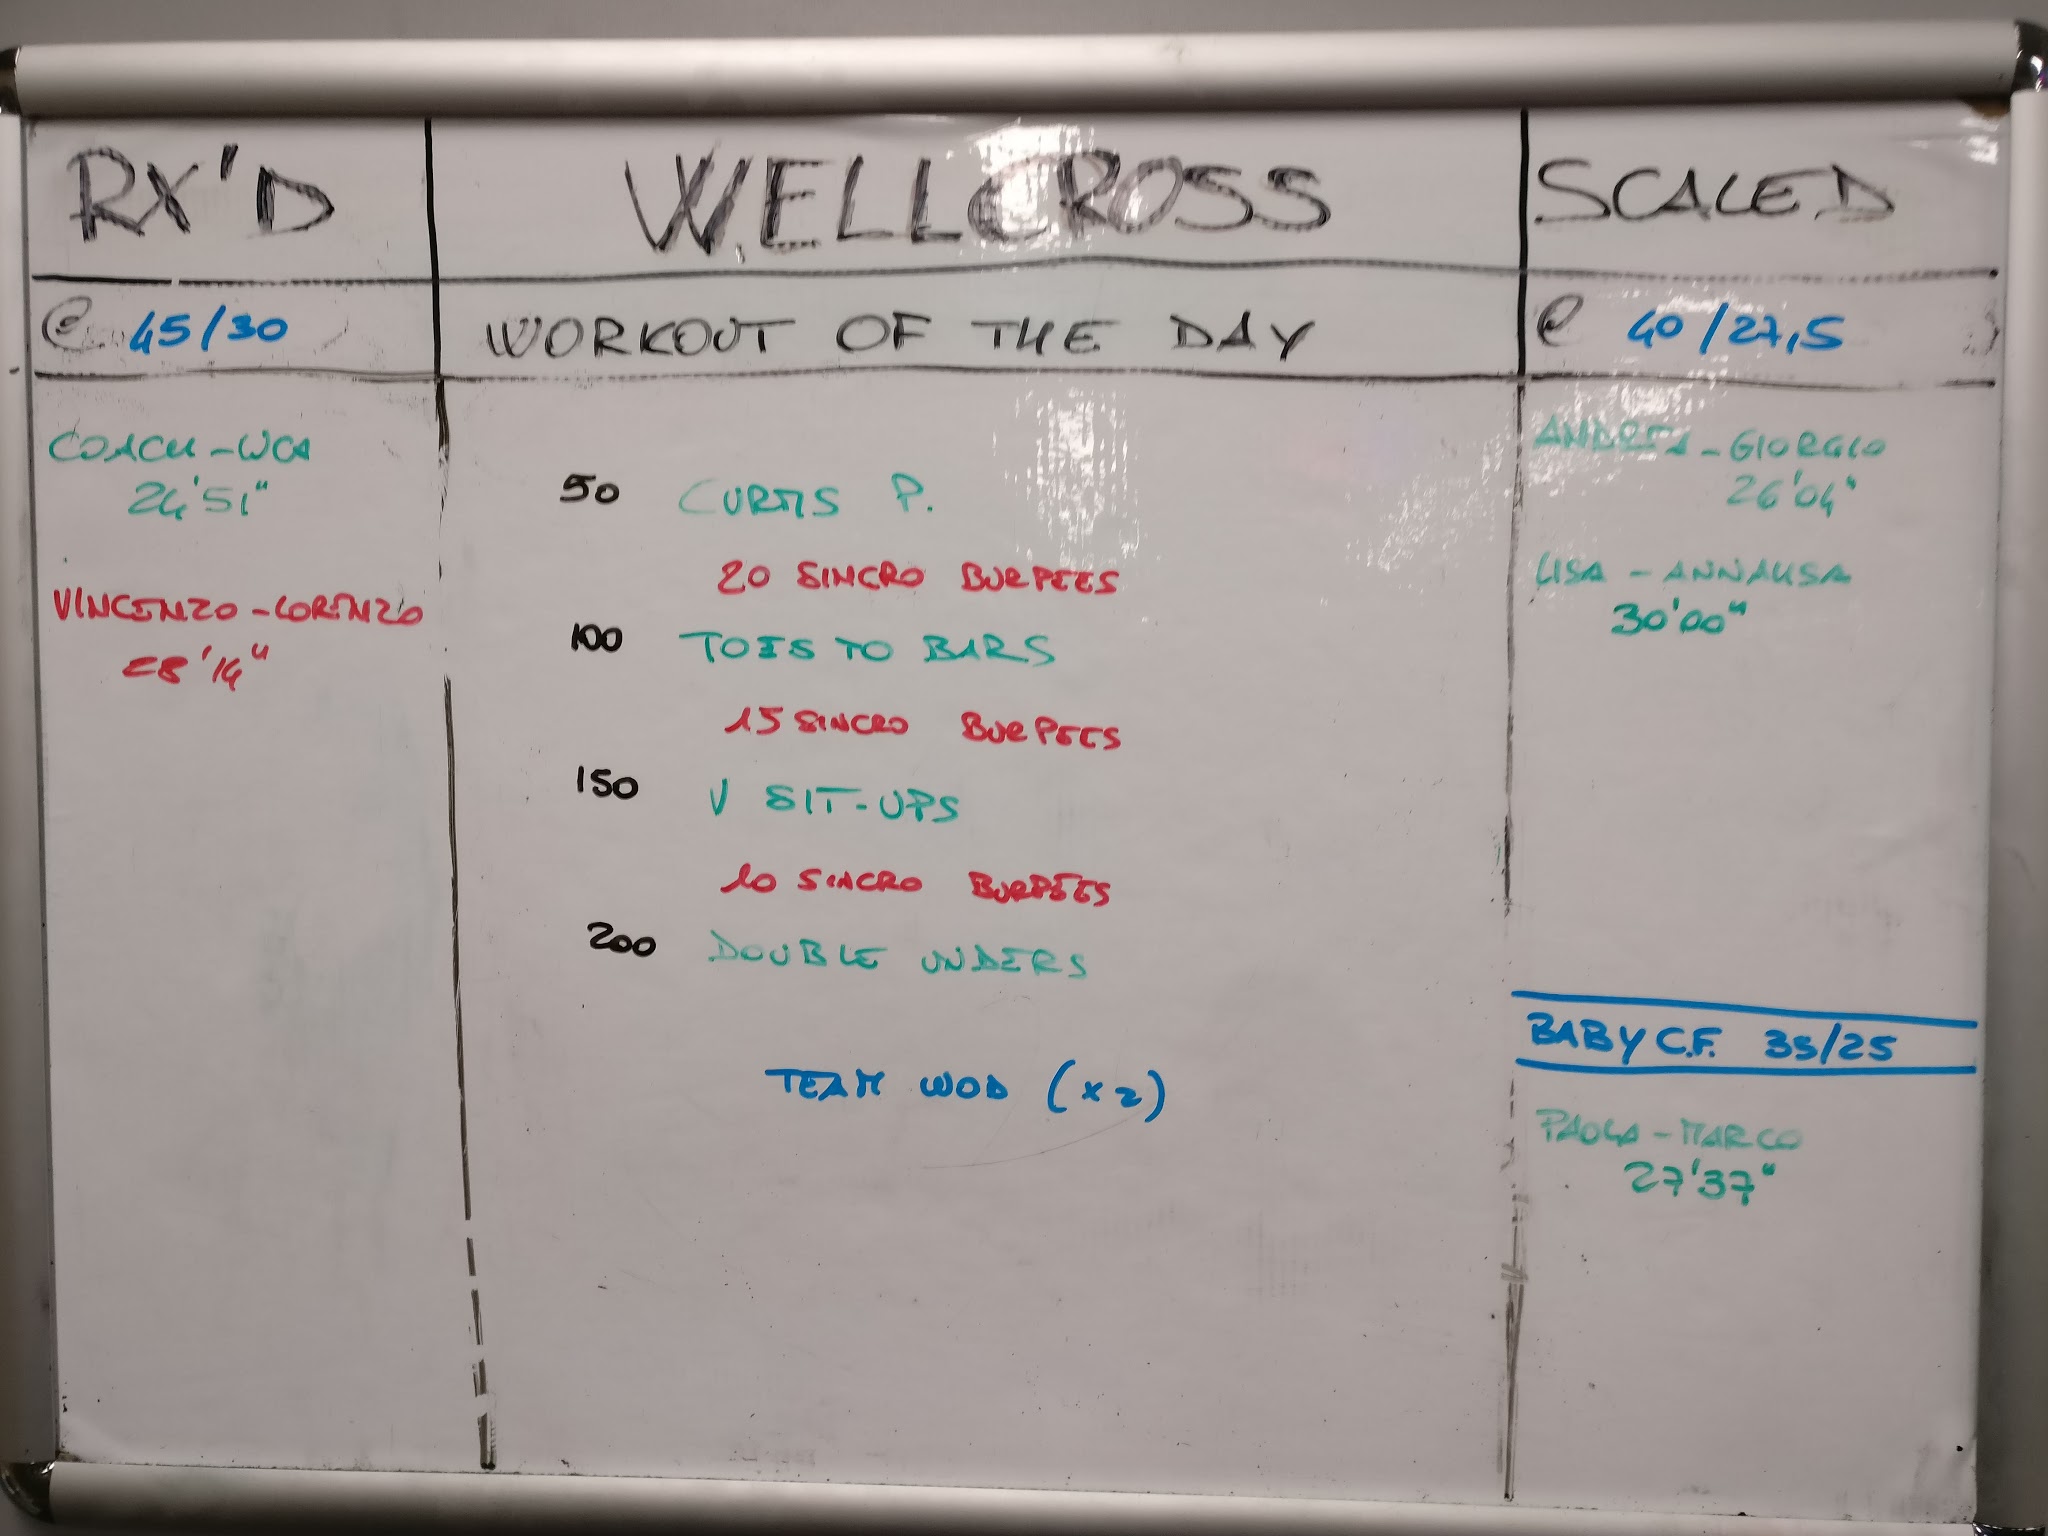 RX'D
@ 45/30
COACH-WCA
24'51"
VINCENZO-LORENZO
28'14"
WELLCROSS
WORKOUT OF THE DAY
50 CURTIS P.
20 SINCRO BURPEES
100 TOES TO BARS
15 SINCRO BURPEES
150 V SIT-UPS
10 SINCRO BURPEES
200 DOUBLE UNDERS
TEAM WOD (x2)
SCALED
@ 40/27,5
ANDREA-GIORGIO
26'04"
LISA-ANNALISA
30'00"
BABY C.F. 35/25
PAOLA-MARCO
27'37"